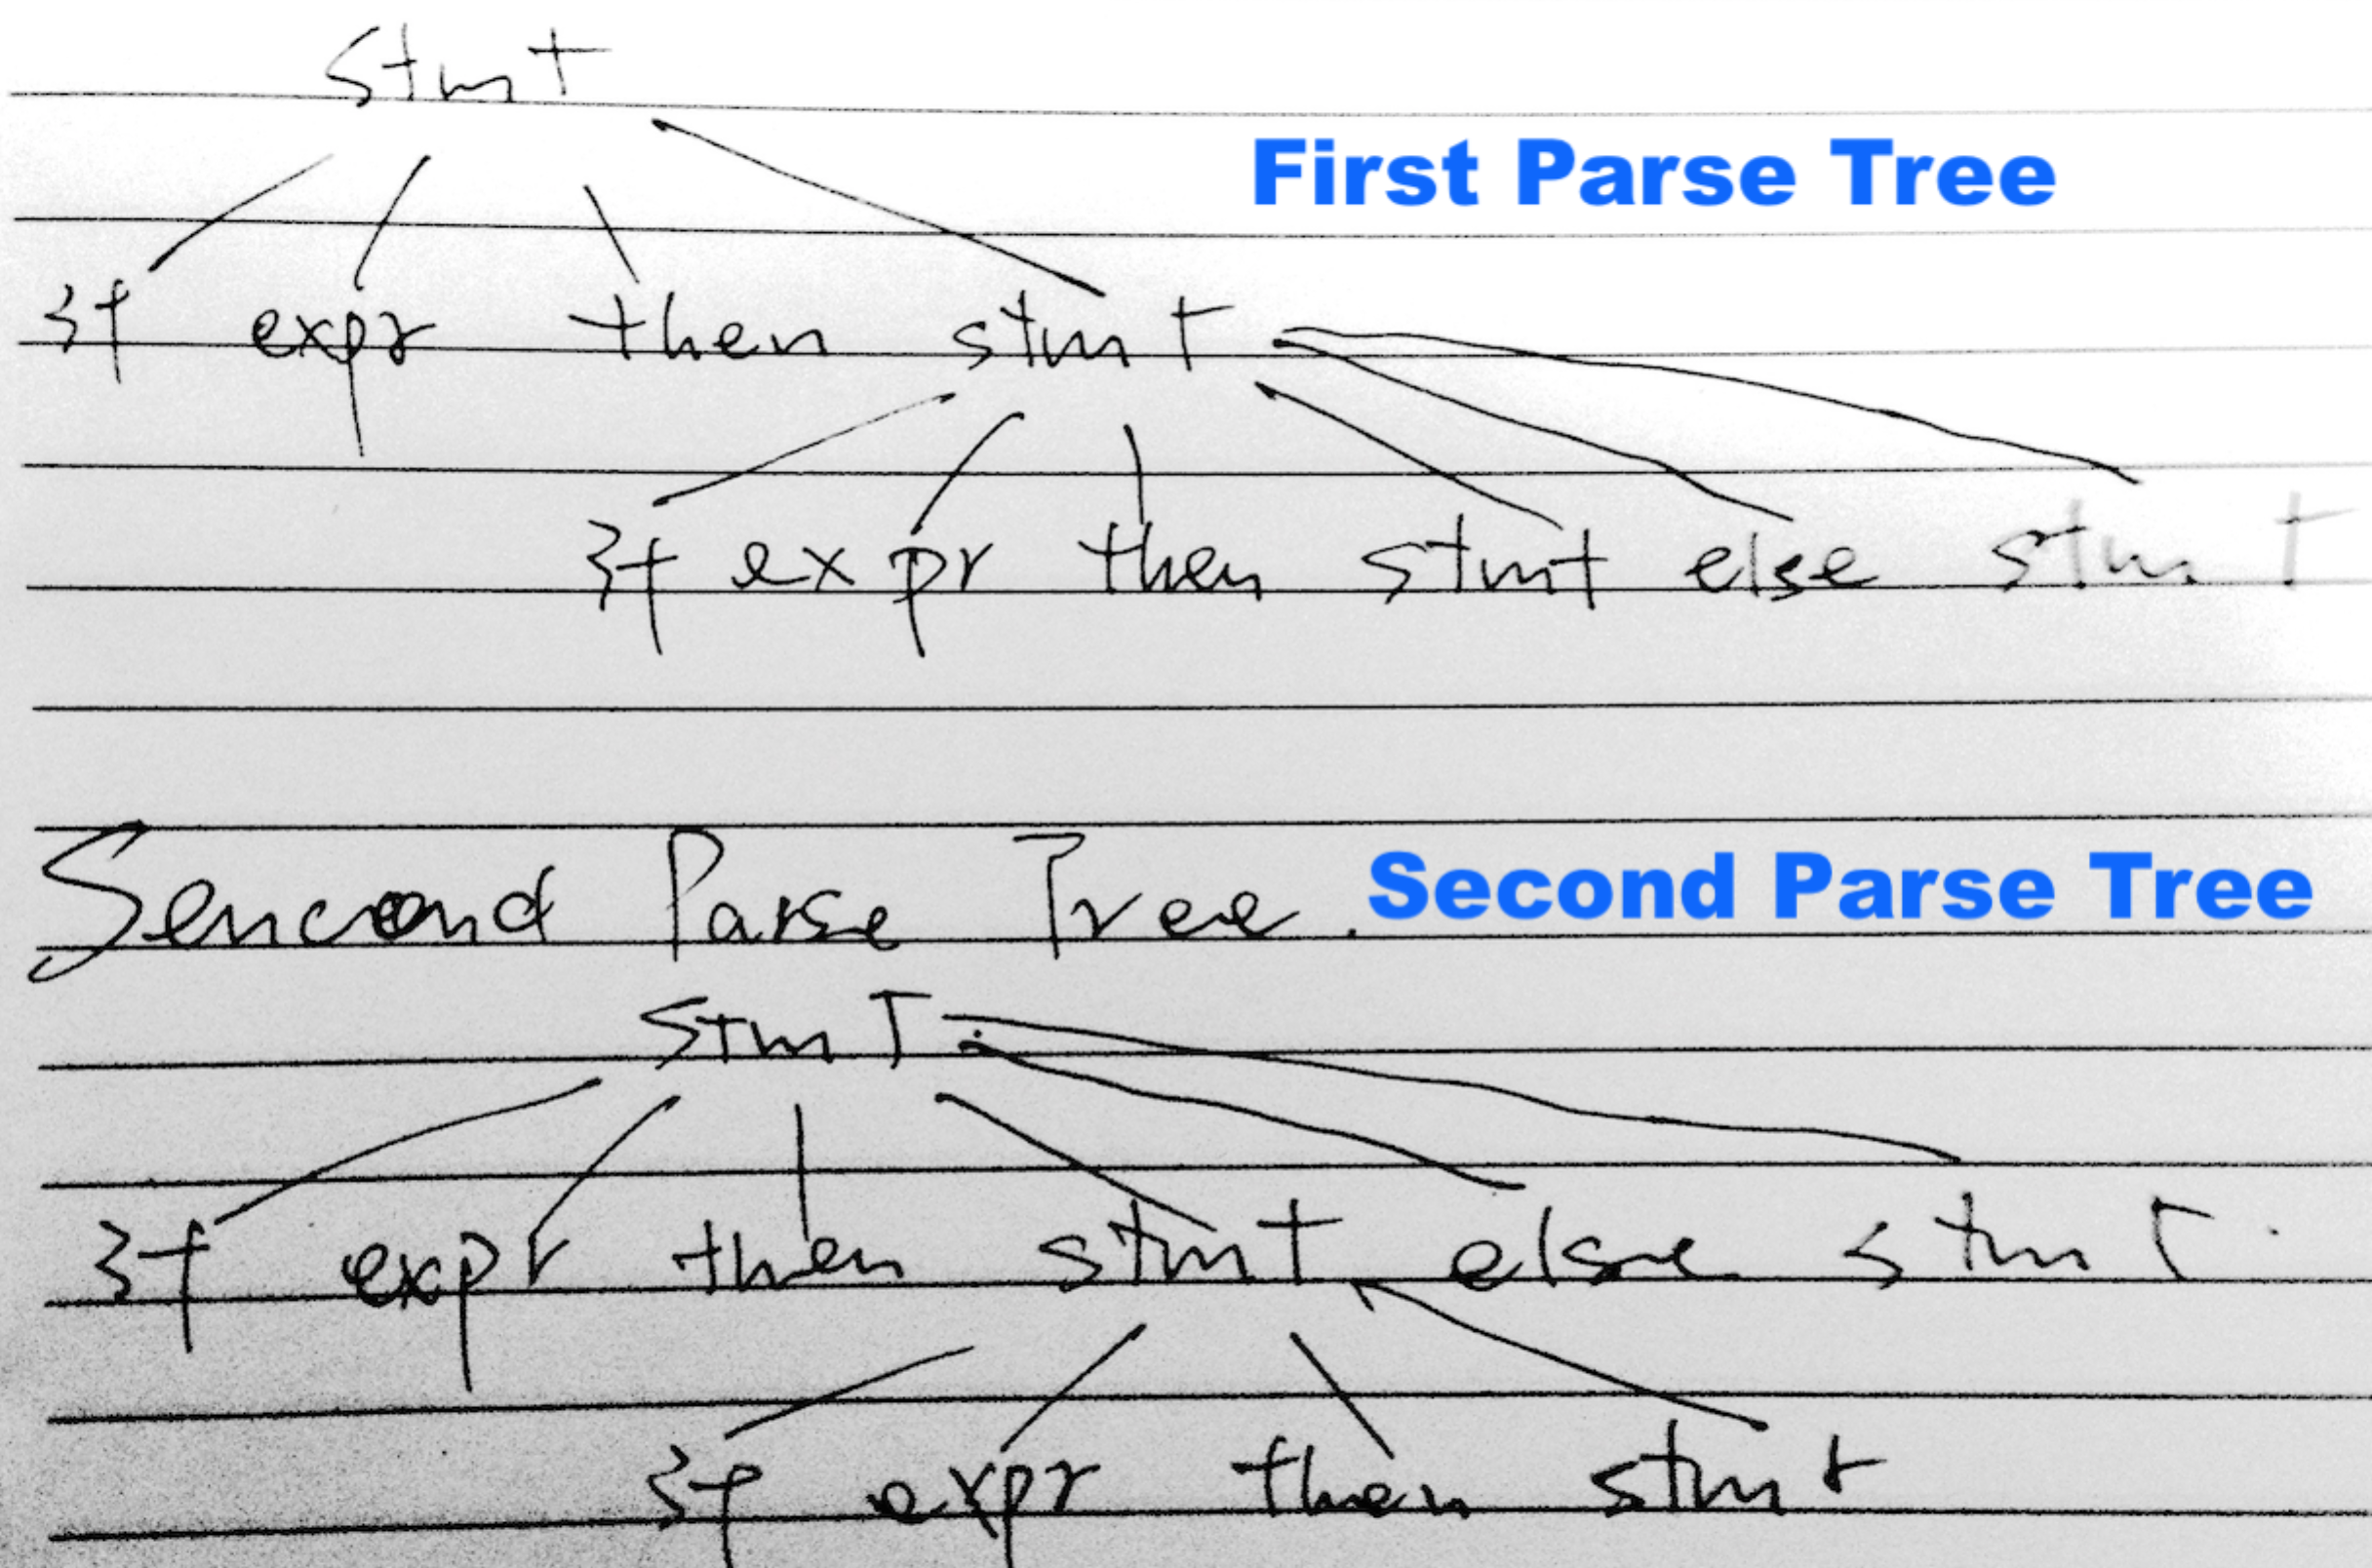 stmt
First Parse Tree
if expr then stmt
if expr then stmt else stmt
Sencond Parse Tree.
Second Parse Tree
stmt
if expr then stmt else stmt
if expr then stmt